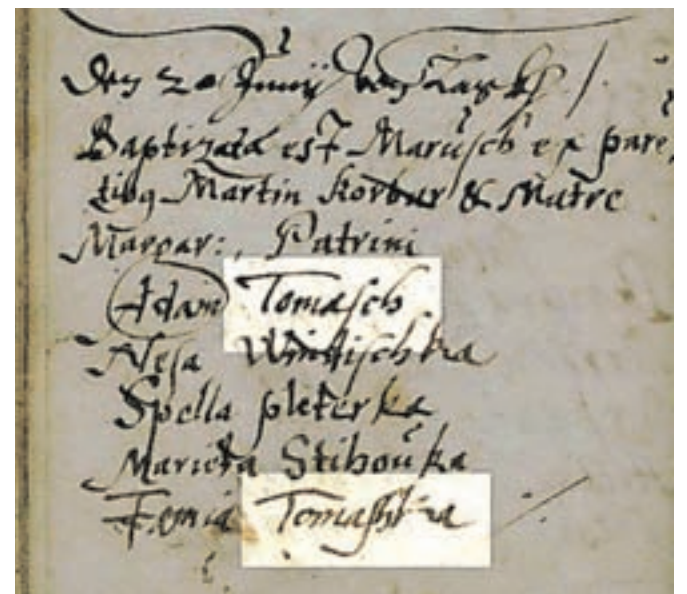 Den 20 Junij
Baptizata est Marusch ex paren
tibq Martin Korbar & Matre
Margar:, Patrini
Adam Tomasch
Nesa Windischka
Spella pleterka
Marieta Stibouka
Femia Tomashka